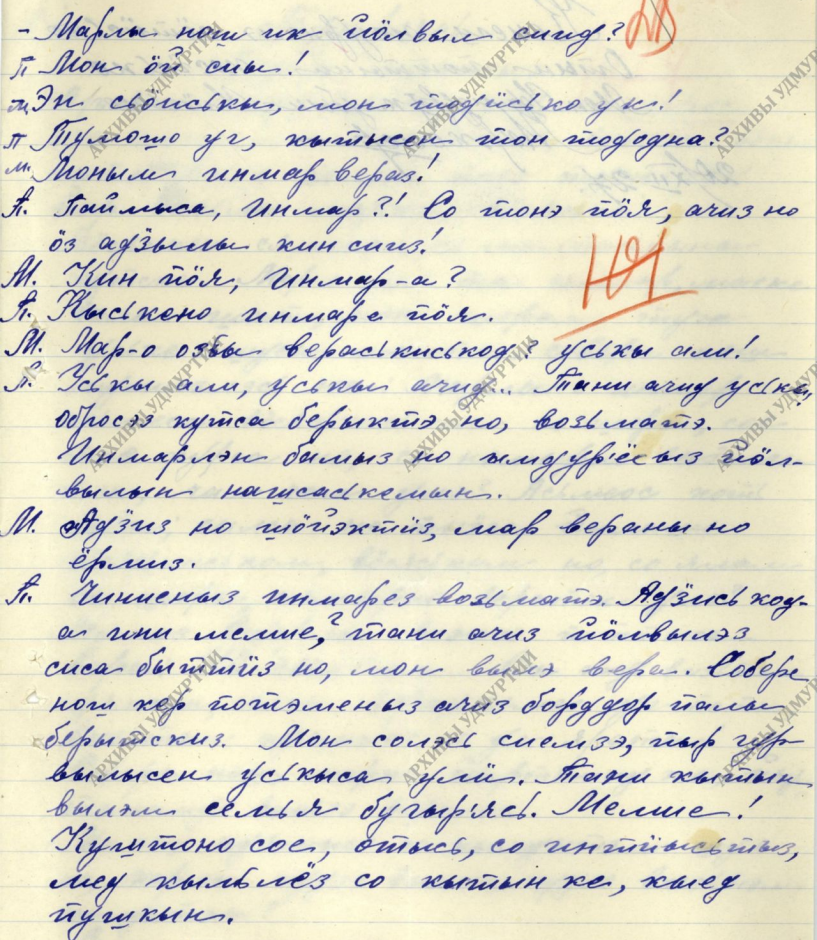 - Марлы нош ик йӧлвыл сиид?
П Мон ӧй сиы!
М Эн сьӧиськы, мон тодӥсько ук!
П Тумошо уг, кытысен тон тододна?
М. Моным инмар вераз!
П. Паймыса, инмар?! Со тонэ пӧя, ачиз но
ӧз адӟылы кин сииз!
М. Кин пӧя, инмар-а?
П. Кыськено инмаре пӧя.
М. Мар-о озьы вераськиськод? уськы али!
П. Уськы али, уськы ачид... Тани ачид уськы,
обросэз кутса берыктэ но, возьматэ.
Инмарлэн бамыз но ымдуръёсыз йӧл-
вылын наштаськемын.
М. Адӟиз но шӧйэктӥз, мар вераны но
ёрмиз.
П. Чиниеныз инмарез возьматэ. Адӟиськод-
а ини мемие,? тани ачиз йӧлвылэз
сиса быттӥз но, мон вылэ вера. Собере
нош кер потэменыз ачиз борддор палы
берытскиз. Мон солэсь сиемзэ, пыр гур
вылысен уськыса улӥ. Тани кытын
вылэм семья бугыръясь. Мемие!
Куштоно сое, отысь, со интӥысьтыз,
мед кыльлёз со кытын ке, кыед
пушкын.
АРХИВЫ УДМУРТИИ